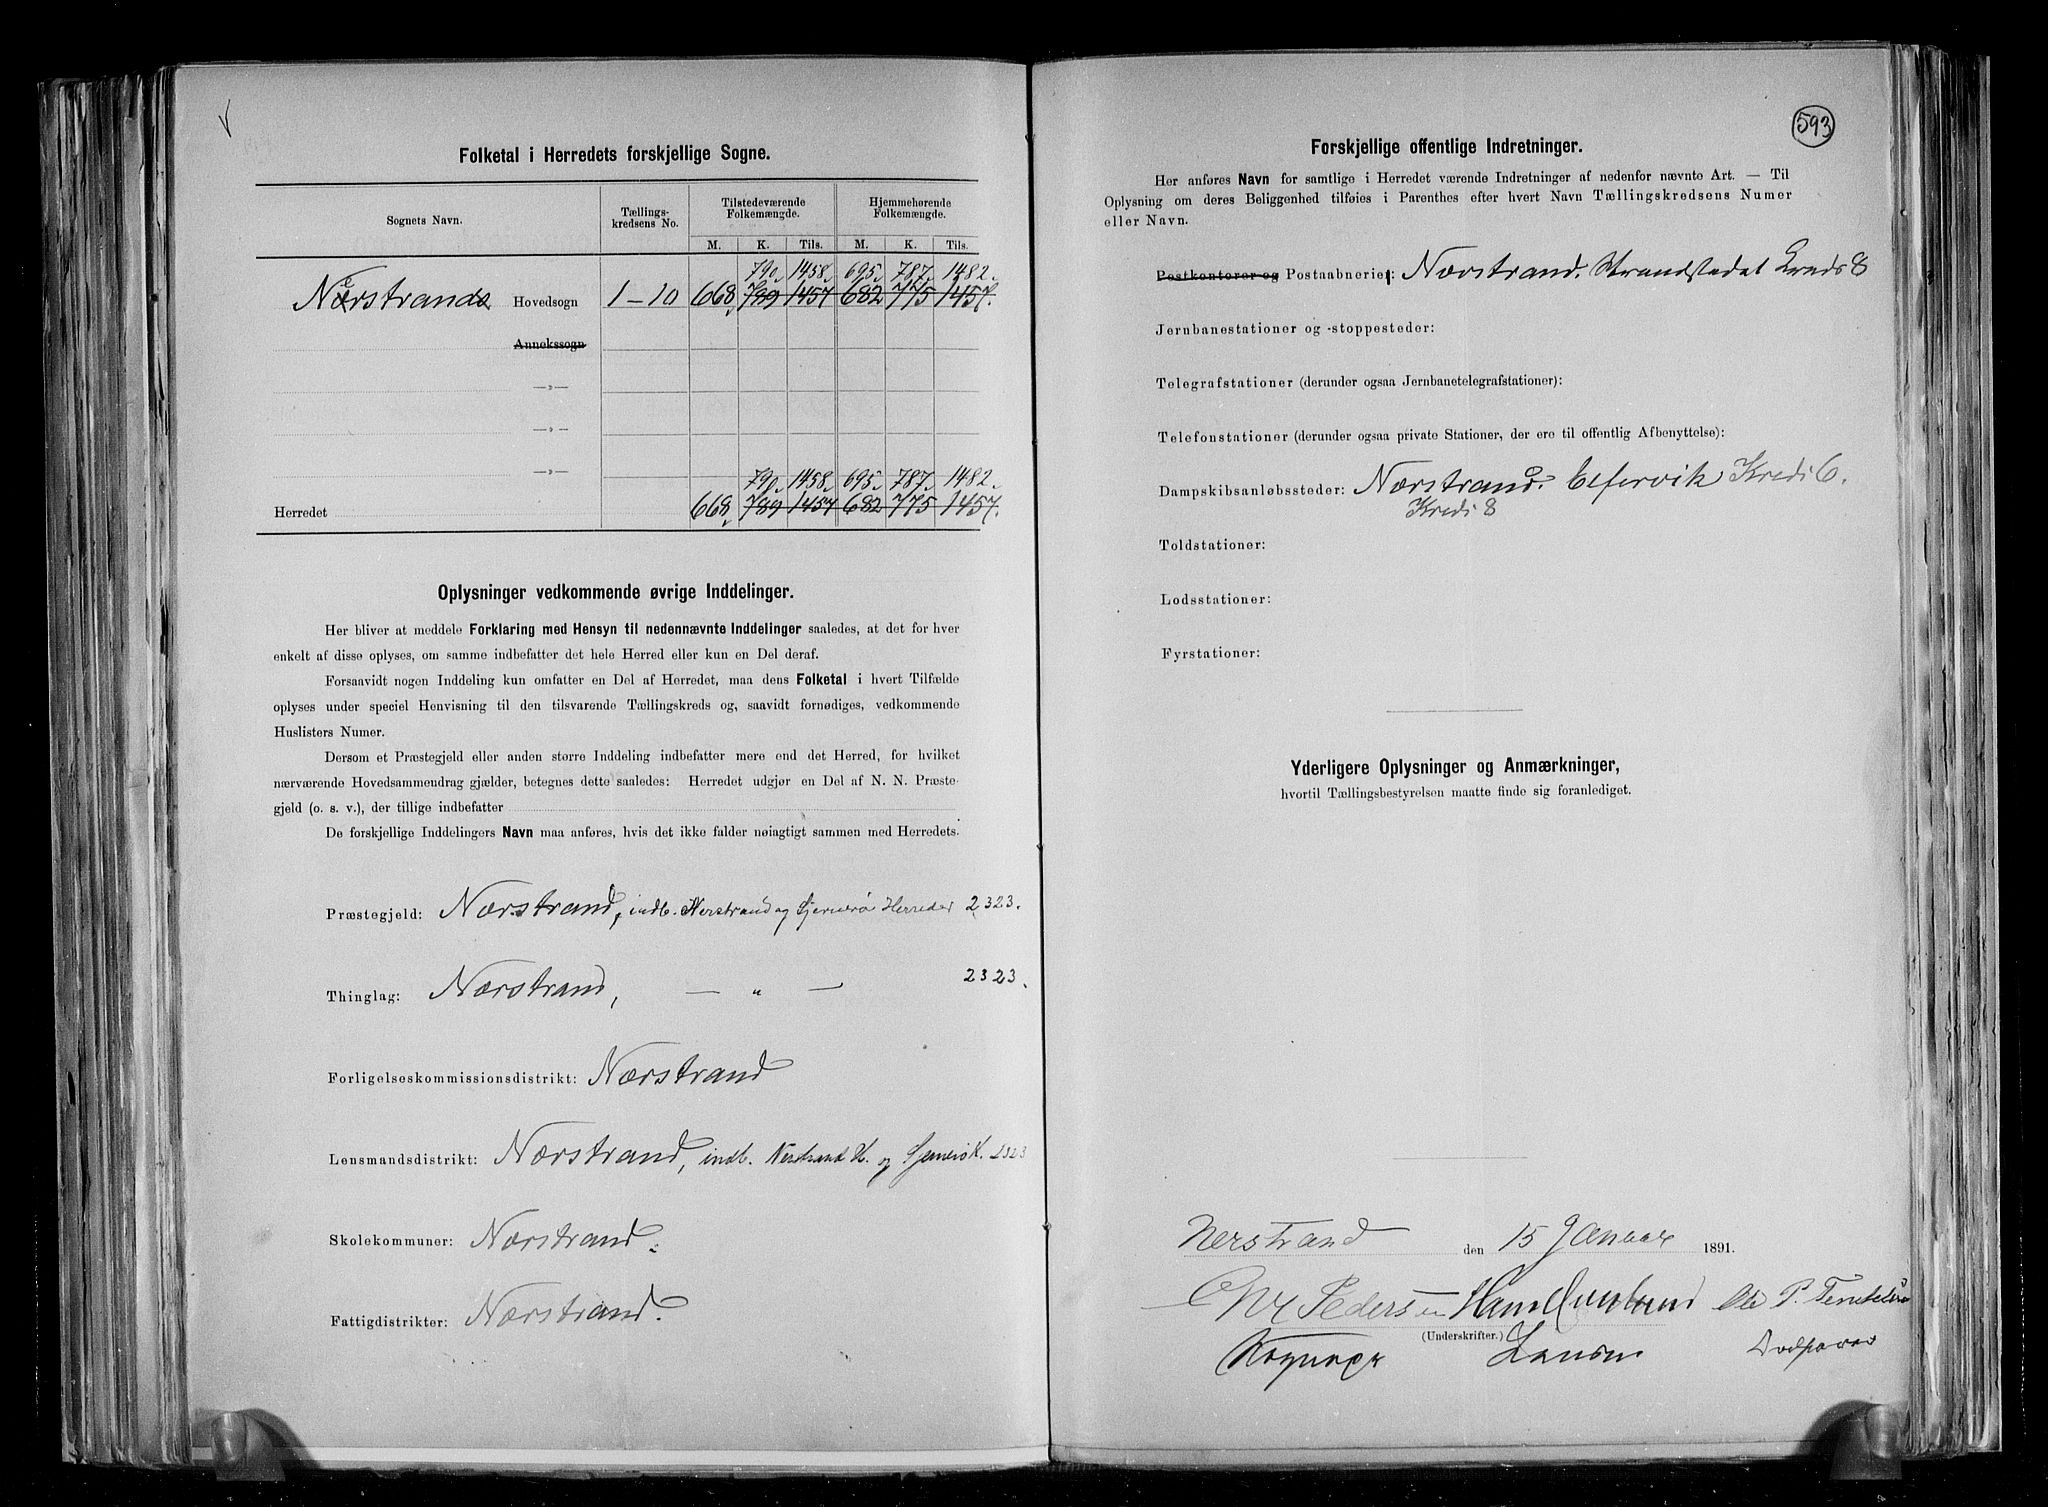 Folketal i Herredets forskjellige Sogne.
Sognets Navn. Tællings- kredsens No. Tilstedeværende Folkemængde. Hjemmehørende Folkemængde.
M. K. Tils. M. K. Tils.
790 1458 695 787 1482.
Nærstrands Hovedsogn 1-10 668 789 1457 682 775 1457.
Annekssogn
—»—
—»—
—»—
790 1458 695 787 1482.
Herredet 668 789 1457 682 775 1457.
Oplysninger vedkommende øvrige Inddelinger.
Her bliver at meddele Forklaring med Hensyn til nedennævnte Inddelinger saaledes, at det for hver
enkelt af disse oplyses, om samme indbefatter det hele Herred eller kun en Del deraf.
Forsaavidt nogen Inddeling kun omfatter en Del af Herredet, maa dens Folketal i hvert Tilfælde
oplyses under speciel Henvisning til den tilsvarende Tællingskreds og, saavidt fornødiges, vedkommende
Huslisters Numer.
Dersom et Præstegjeld eller anden større Inddeling indbefatter mere end det Herred, for hvilket
nærværende Hovedsammendrag gjælder, betegnes dette saaledes: Herredet udgjør en Del af N. N. Præste-
gjeld (o. s. v.), der tillige indbefatter
De forskjellige Inddelingers Navn maa anføres, hvis det ikke falder nøiagtigt sammen med Herredets.
Præstegjeld: Nærstrand, indb. Nerstrand og Sjernerø Herreder 2323.
Thinglag: Nærstrand, — „ — 2323.
Forligelseskommissionsdistrikt: Nærstrand
Lensmandsdistrikt: Nærstrand, indb. Nerstrand H. og Sjernerø H. 2323
Skolekommuner: Nærstrand.
Fattigdistrikter: Nærstrand.
593
Forskjellige offentlige Indretninger.
Her anføres Navn for samtlige i Herredet værende Indretninger af nedenfor nævnte Art. — Til
Oplysning om deres Beliggenhed tilføies i Parenthes efter hvert Navn Tællingskredsens Numer
eller Navn.
Postkontorer og Postaabnerier: Nærstrand. Strandstedet Kreds 8
Jernbanestationer og -stoppesteder:
Telegrafstationer (derunder ogsaa Jernbanetelegrafstationer):
Telefonstationer (derunder ogsaa private Stationer, der ere til offentlig Afbenyttelse):
Dampskibsanløbssteder: Nærstrand. Kreds 6.
Kreds 8
Toldstationer:
Lodsstationer:
Fyrstationer:
Yderligere Oplysninger og Anmærkninger,
hvortil Tællingsbestyrelsen maatte finde sig foranlediget.
Nerstrand den 15 Januar 1891.
Pedersen Hans Ole P.
(Underskrifter.)
Sognepr Lensm Ordfører